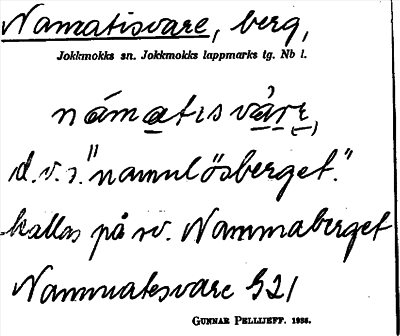 Namatisvare, berg,
Jokkmokks sn. Jokkmokks lappmarks tg. Nb l.
námatisvárε,
d.v.s. "namnlösberget."
kallas på sv. Nammaberget
Nammatesvare G21
GUNNAR PELLIJEFF. 1936.